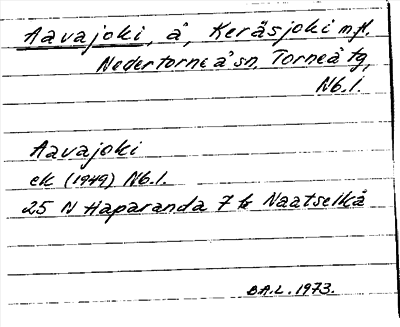 Aavajoki, å, Keräsjoki m.fl.
Nedertorneå sn, Torneå tg,
Nb.l.
Aavajoki
ek (1949) Nb.l.
25 N Haparanda 7 Naatselkä
B.A.L. 1973.